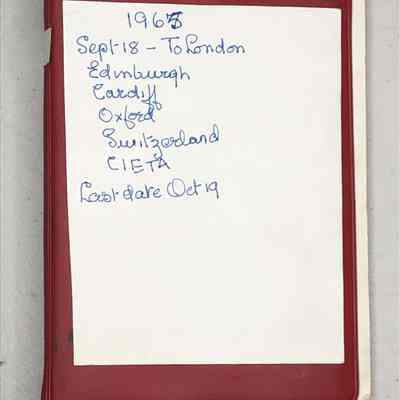 1965
Sept 18 - To London
Edinburgh
Cardiff
Oxford
Switzerland
CIETA
Last date Oct 19